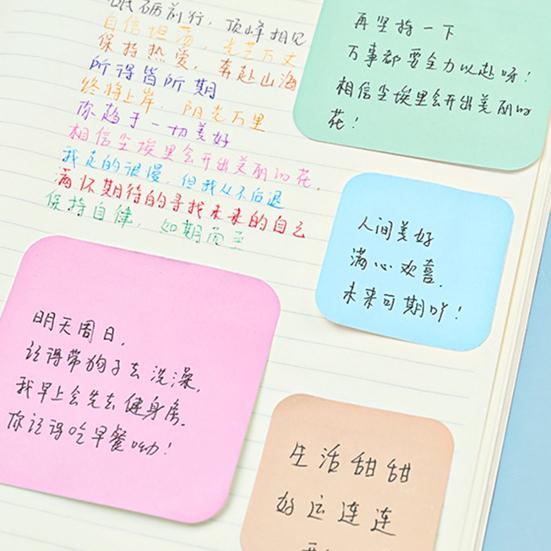 砥砺前行，顶峰相见
自信坦荡，光芒万丈
保持热爱，奔赴山海
所得皆所期
终将上岸，阳光万里
你趋于一切美好
相信尘埃里会开出美丽的花，
我走的很慢，但我从不后退
满怀期待的寻找未来的自己
保持自律，如期而至
再坚持一下
万事都要全力以赴呀！
相信尘埃里会开出美丽的
花！
人间美好
满心欢喜，
未来可期吖！
明天周日，
记得带狗子去洗澡，
我早上会先去健身房，
你记得吃早餐呦！
生活甜甜
好运连连